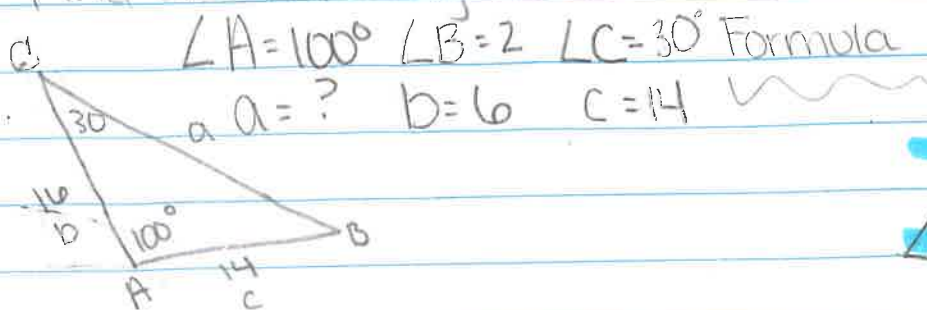 ∠A=100° ∠B=2 ∠C=30° Formula
a=? b=6 c=14
C
30
a
16
b
100°
B
A
14
c